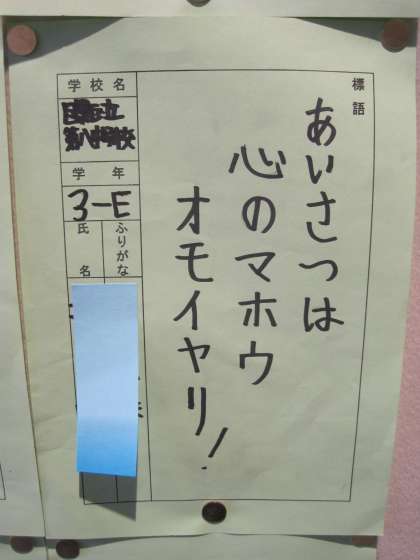 標語
あいさつは
心のマホウ
オモイヤリ！
学校名
学年
3-E
ふりがな
氏名